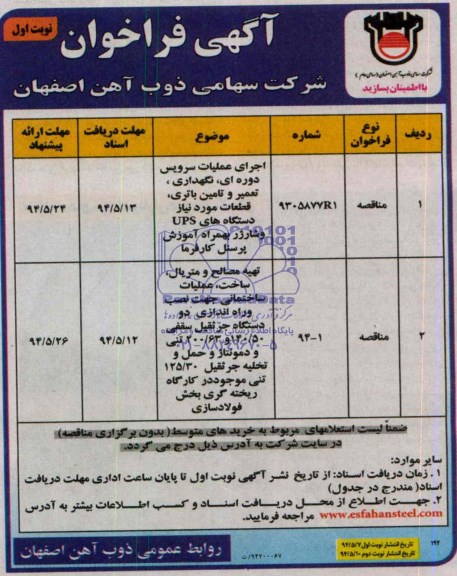 نوبت اول
آگهی فراخوان
شرکت سهامی ذوب آهن اصفهان
شرکت سهامی ذوب آهن اصفهان (سهامی عام)
با اطمینان بسازید
ردیف
نوع فراخوان
شماره
موضوع
مهلت دریافت اسناد
مهلت ارائه پیشنهاد
۱
مناقصه
۹۳۰۵۸۷۷R۱
اجرای عملیات سرویس
دوره ای، نگهداری ،
تعمیر و تامین باتری،
قطعات مورد نیاز
دستگاه های UPS
وشارژر بهمراه آموزش
پرسنل کارفرما
۹۴/۵/۱۳
۹۴/۵/۲۴
۲
مناقصه
۹۴-۱
تهیه مصالح و متریال،
ساخت، عملیات
ساختمانی جهت نصب
وراه اندازی دو
دستگاه جرثقیل سقفی
۱۴۰/۵۰و ۲۰۰/۶۳ تنی
و دمونتاژ و حمل و
تخلیه جرثقیل ۱۲۵/۳۰
تنی موجوددر کارگاه
ریخته گری بخش
فولادسازی
۹۴/۵/۱۲
۹۴/۵/۲۶
۰۲۱-۸۸۳۴۹۶۷۰-۵
ضمناً لیست استعلامهای مربوط به خرید های متوسط( بدون برگزاری مناقصه)
در سایت شرکت به آدرس ذیل درج می گردد.
سایر موارد:
۱. زمان دریافت اسناد: از تاریخ نشر آگهی نوبت اول تا پایان ساعت اداری مهلت دریافت
اسناد( مندرج در جدول)
۲. جهت اطلاع از محل دریافت اسناد و کسب اطلاعات بیشتر به آدرس
www.esfahansteel.com مراجعه فرمایید.
۱۹۴
تاریخ انتشار نوبت اول:۹۴/۵/۷
تاریخ انتشار نوبت دوم :۹۴/۵/۱۰
۹۴۲۰۰۰۶۷/ت
روابط عمومی ذوب آهن اصفهان